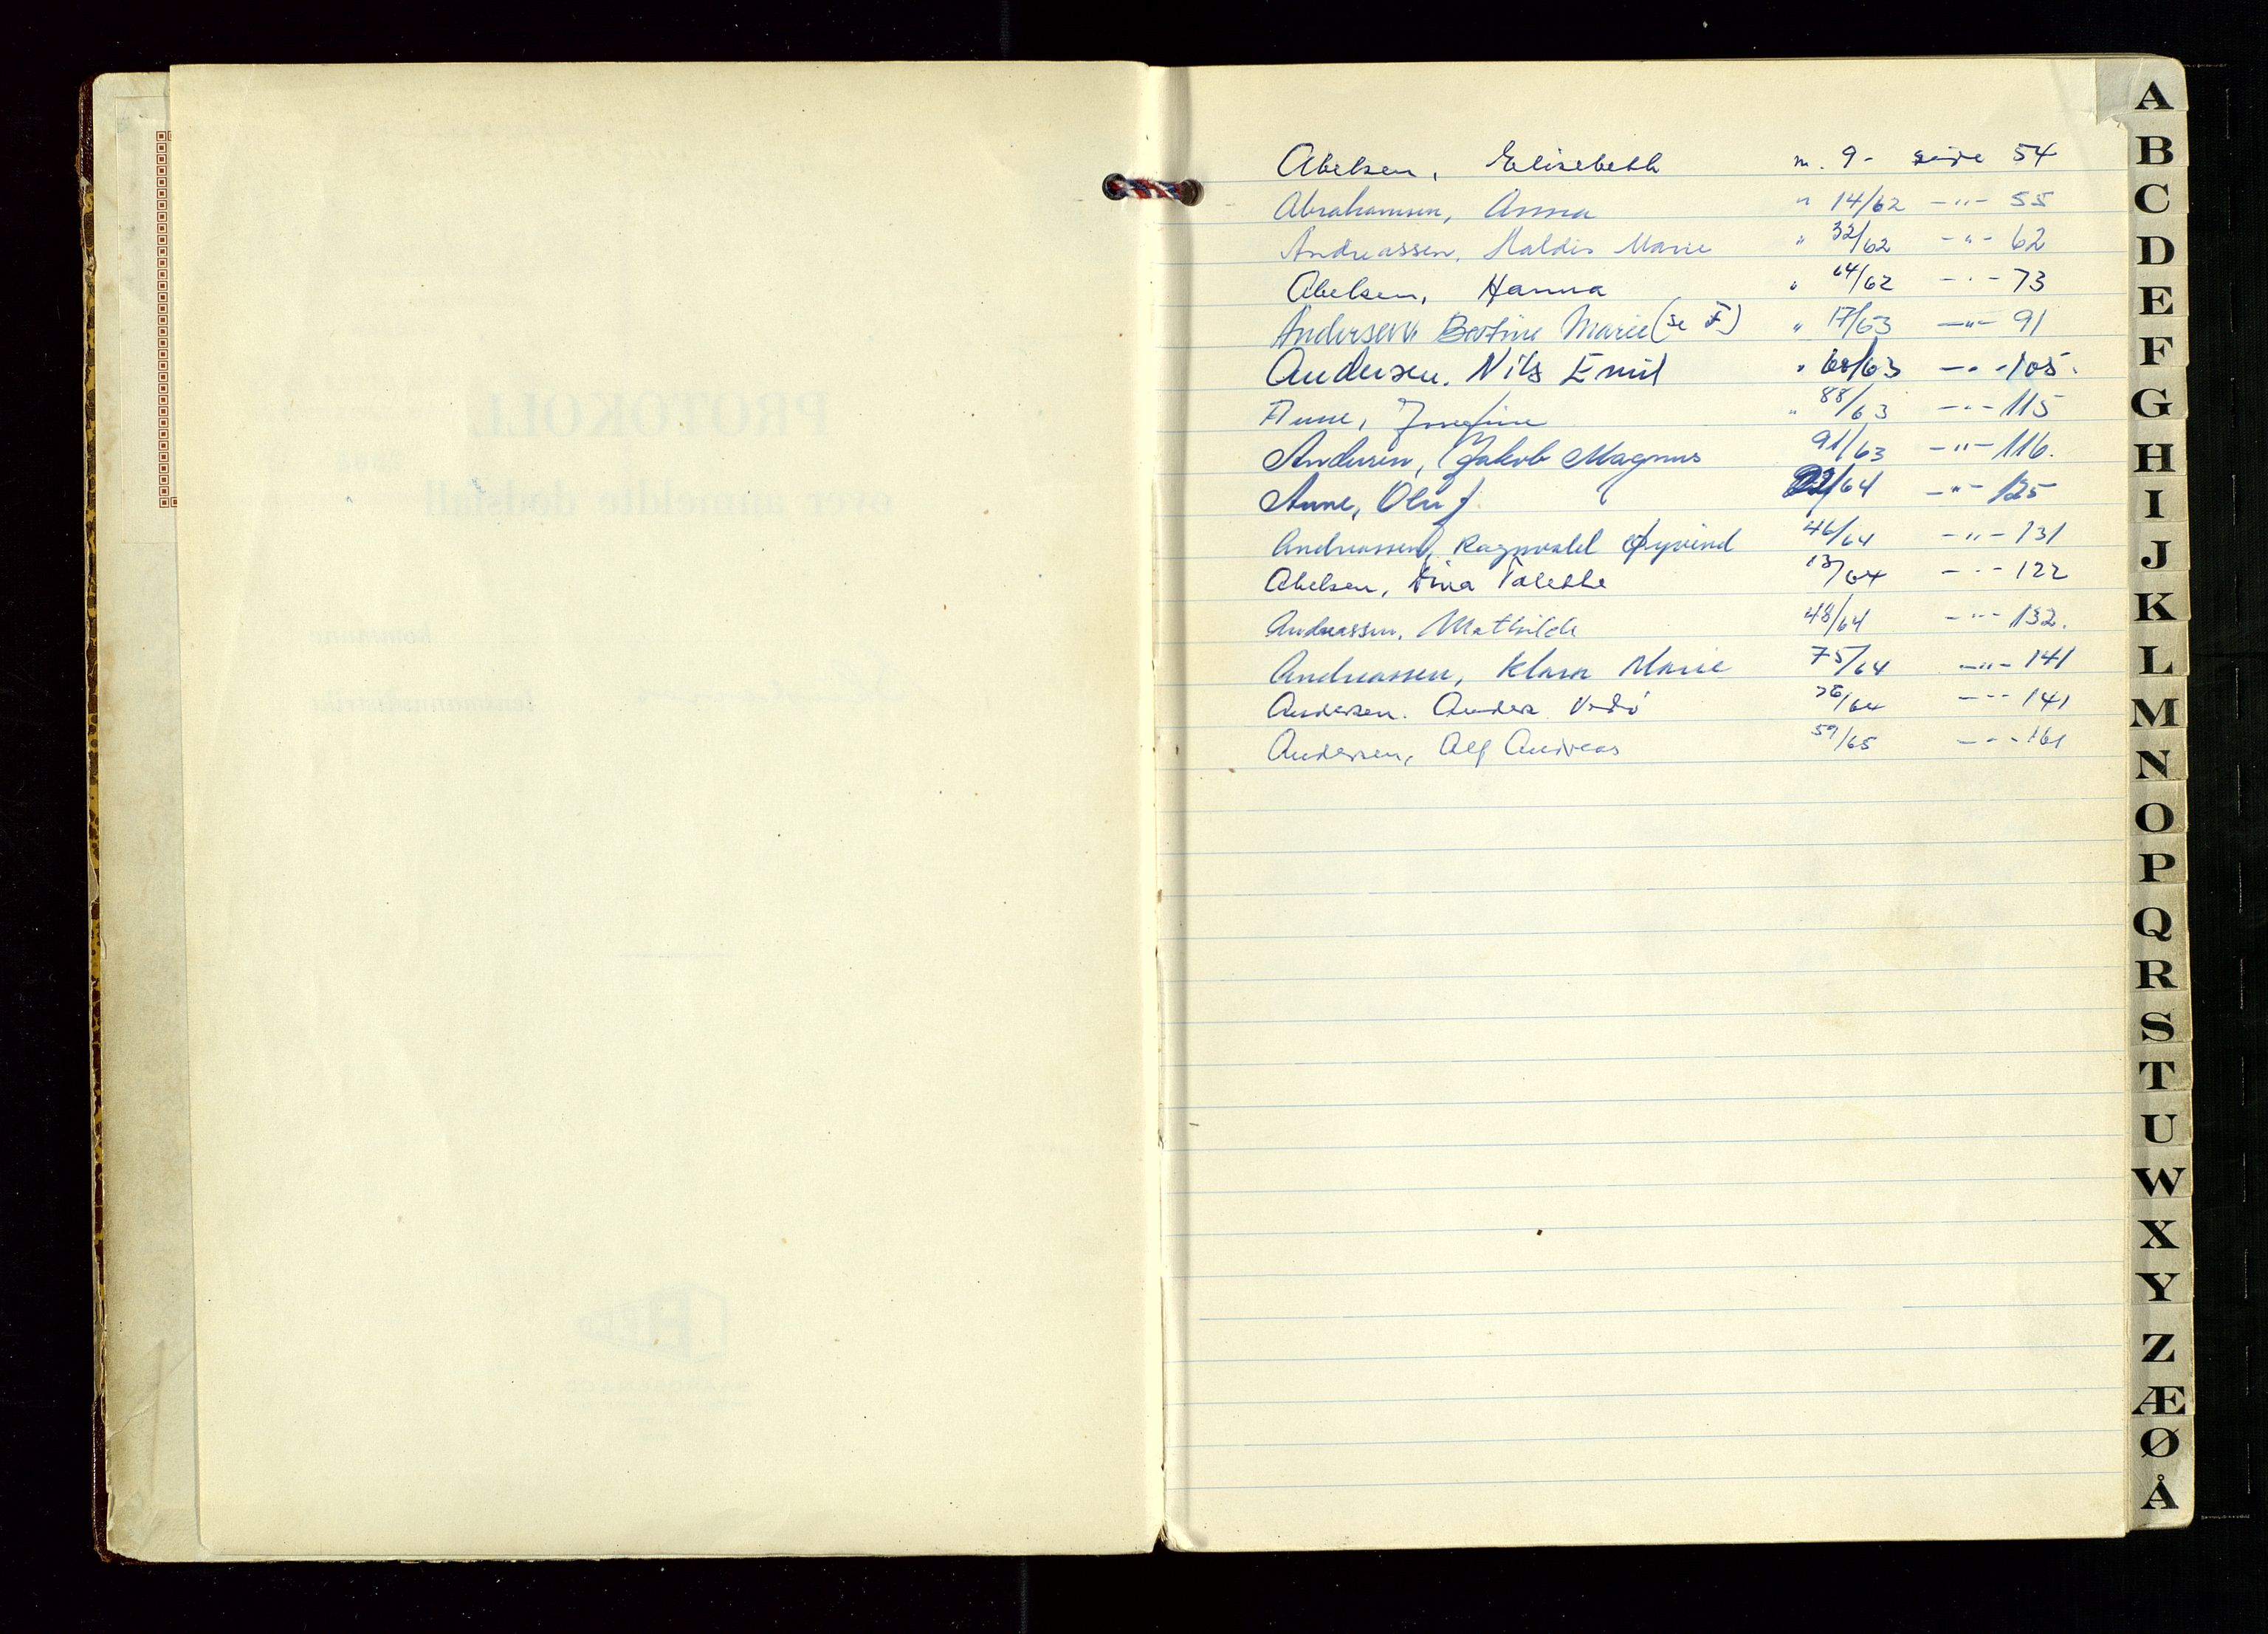 Abelsen, Elisebeth n. 9- side 54
Abrahamsen, Anna " 14/62 -"- 55
Andreassen, Haldis Marie " 32/62 -"- 62
Abelsen, Hanna " 64/62 -"- 73
Andersen, Bertine Marie (se F) " 17/63 -"- 91
Andersen. Nils Emil " 60/63 -"- 105.
Aune, Josefine " 88/63 -"- 115
Andersen, Jakob Magnus 91/63 -"- 116.
Aune, Oluf 22/64 -"- 125
Andreassen, Ragnvald Øyvind 46/64 -"- 131
Abelsen, Tina Talette 13/64 -"- 122
Andreassen, Mathilde 48/64 -"- 132.
Andreassen, Klara Marie 75/64 -"- 141
Andersen. Anders 76/64 -"- 141
Andersen, Alf Andreas 59/65 -"- 161
A
B
C
D
E
F
G
H
I
J
K
L
M
N
O
P
Q
R
S
T
U
W
X
Y
Z
Æ
Ø
Å